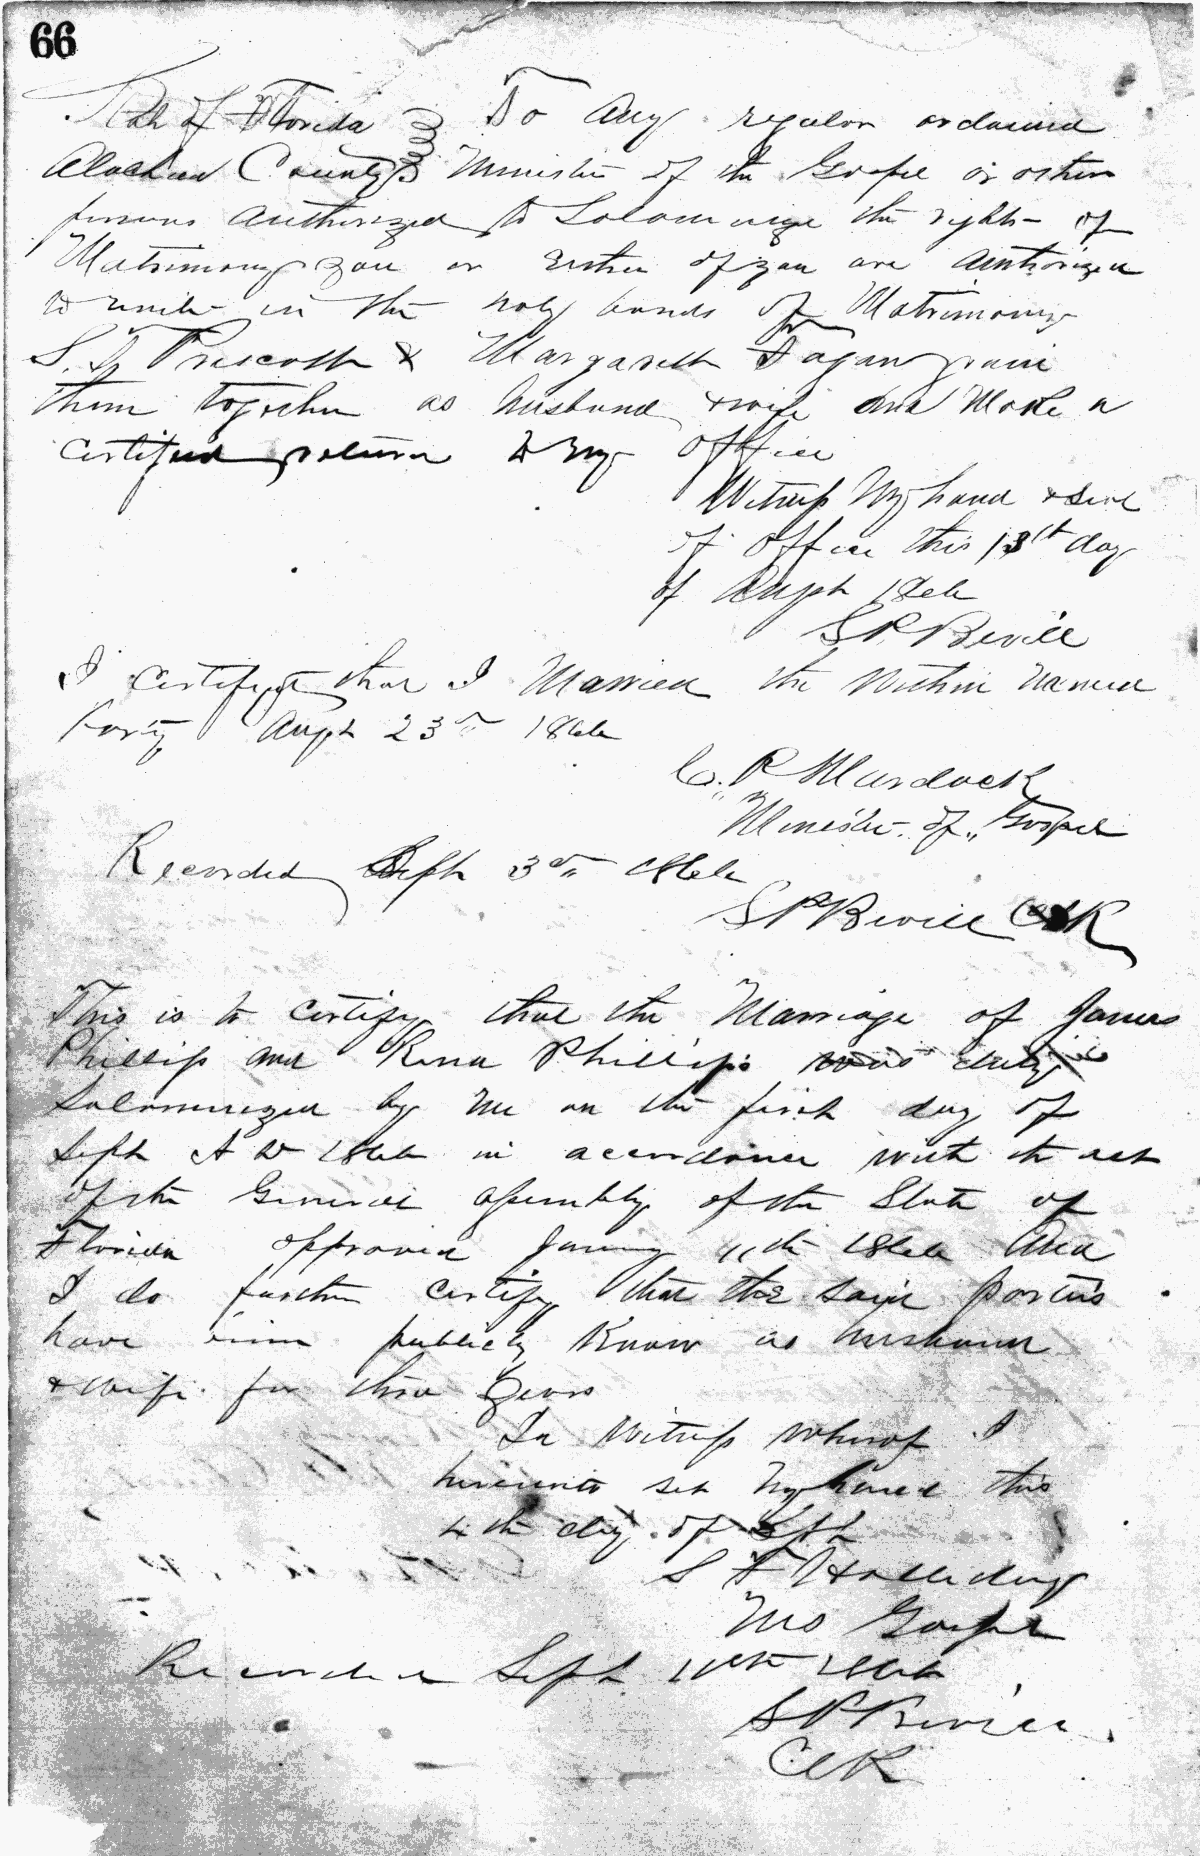 66
State of Florida To Any regular ordained
Alachua County Minister of the Gospel or other
persons authorized to Solomnize the rights of
Matrimony you or Either of you are authorized
to unite in the holy bonds of Matrimony
S. Prescott & Margarett Fagan join
them together as husband & wife and Make a
Certified return to my office
Witness My hand & Seal
of office this 13th day
of Augst 1866
S P Bevill
I Certify that I Married the Within Named
Party Augst 23rd 1866
C. P. Murdock
Minister of Gospel
Recorded Sept 3rd 1866
S P Bevill Clk
This is to Certify that the Marriage of James
Phillips and Rena Phillips was duly
Solomnized by me on the first day of
Sept A D 1866 in accordance with the act
of the General assembly of the State of
Florida approved January 11th 1866 And
I do further Certify that the said parties
have been publicly Know as husband
& wife for three years
In Witness wherof I
hereunto set my hand this
4th day of Sept
S F Halliday
M G Gospel
Recorded Sept 1866
S P Bevill
Clk